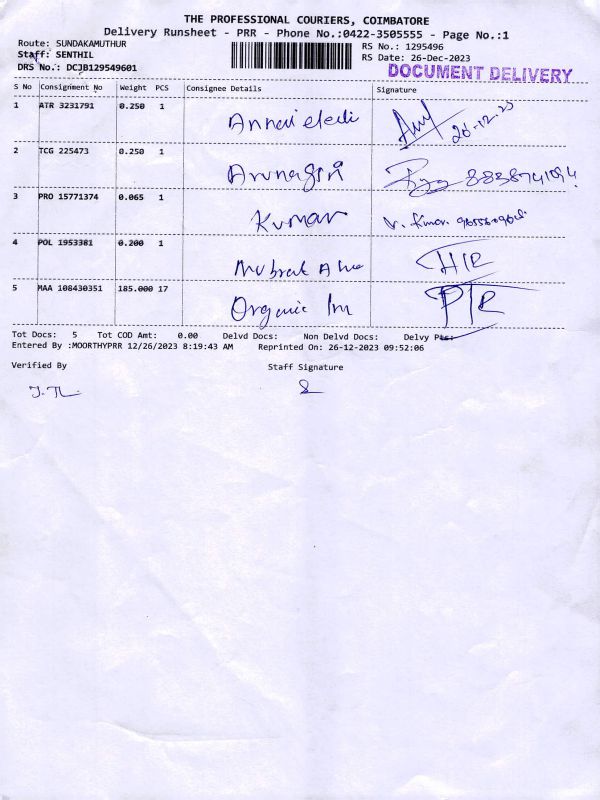 THE PROFESSIONAL COURIERS, COIMBATORE
Delivery Runsheet - PRR - Phone No.:0422-3505555 - Page No.:1
Route: SUNDAKAMUTHUR RS No.: 1295496
Staff: SENTHIL RS Date: 26-Dec-2023
DRS No.: DCJB129549601 DOCUMENT DELIVERY
S No Consignment No Weight PCS Consignee Details Signature
1 ATR 3231791 0.250 1 26-12-23
2 TCG 225473 0.250 1
3 PRO 15771374 0.065 1 Kumar
4 POL 1953381 0.200 1 H/R
5 MAA 108430351 185.000 17 Organic P/R
Tot Docs: 5 Tot COD Amt: 0.00 Delvd Docs: Non Delvd Docs: Delvy Pts:
Entered By :MOORTHYPRR 12/26/2023 8:19:43 AM Reprinted On: 26-12-2023 09:52:06
Verified By Staff Signature